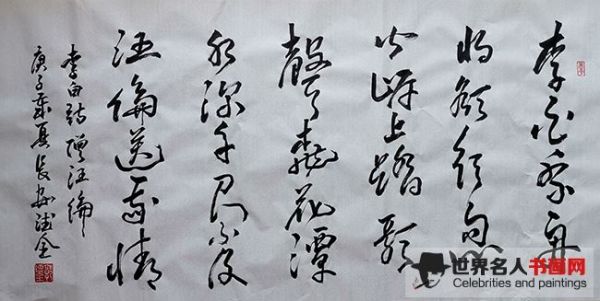 李白乘舟
将欲行忽
闻岸上踏歌
聲桃花潭
水深千尺不及
汪倫送我情
李白詩贈汪倫
庚子季夏長安
世界名人书画网
Celebrities and paintings